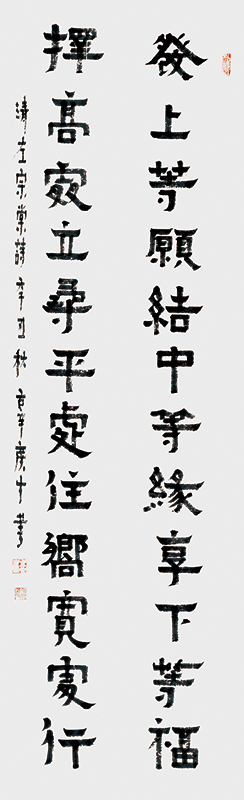 發上等願結中等緣享下等福
擇高處立尋平處住嚮寬處行
清左宗棠詩辛丑秋